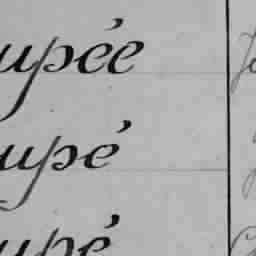 upée
upé
upé